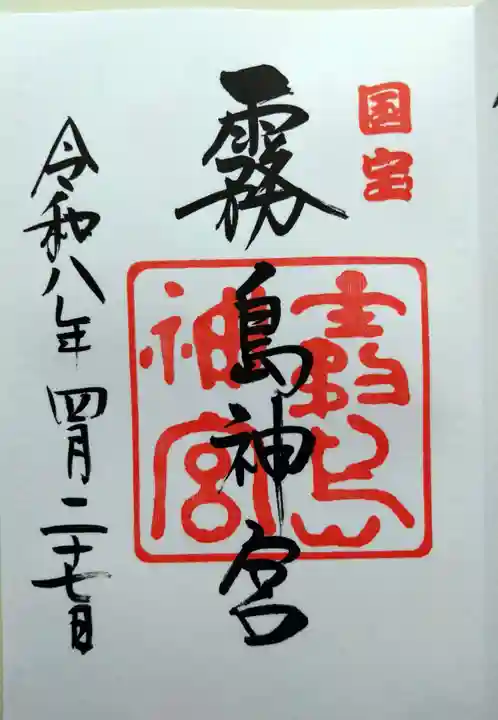 国宝
霧島神宮
霧島神宮
令和八年四月二十七日